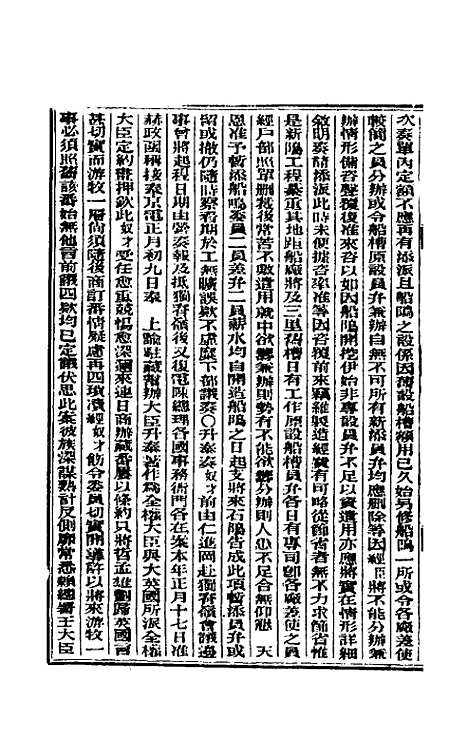 次奏單內定額不應再有添派且船隖之設係因舊設船槽額用已久始另修船隖一所或令各廠差使
較簡之員分辦或令船槽原設員弁兼辦自無不可所有新添員弁均應刪除等因經 臣將不能分辦兼
辦情形備咨聲覆復准來咨以如因船隖開挖伊始非專設員弁不足以資遣用亦應將實在情形詳細
敘明奏請添派此時未便據咨率准等因咨覆前來竊維製造經費有可略從節省者無不力求節省惟
是新隖工程綦重其地距船廠將及三里舊槽日有工作原設船槽員弁各日有專司卽各廠差使之員
經戶部照單刪裁後常苦不敷遣用就中欲兼辦則勢有不能欲分辦則人忽不足合無仰懇 天
恩准予暫添船隖委員二員差弁二員薪水均自開造船隖之日起支將來石隖告成此項暫添員弁或
留或撤仍隨時察看期於工無曠誤款不虛糜下部議奏〇升泰奏奴才前由仁進岡赴獨脊嶺會議邊
事曾將起程日期由驛奏報及抵獨脊嶺後又復電陳總理各國事務衙門各在案本年正月十七日准
赫政函稱接奏京電正月初九日奉 上諭駐藏幫辦大臣升泰著作為全權大臣與大英國所派全權
大臣定約畫押欽此奴才受任愈重兢惕愈深邇來連日商辦藏番屢以條約只將哲孟雄劃歸英國言
甚切實而游牧一層尚須隨後商訂番情疑慮再四瑣瀆經奴才飭令委員切實開導許以將來游牧一
事必須照舊該番始無他言前議四款均已定議伏思此案彼族深謀熟計反側靡常悉賴總署王大臣